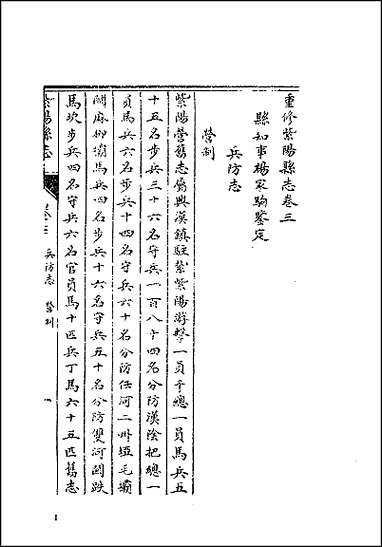 重修紫陽縣志卷三
縣知事楊家駒鑒定
兵防志
營制
紫陽營舊志屬興漢鎮駐紮紫陽游擊一員千總一員馬兵五
十五名步兵三十六名守兵一百八十四名分防漢陰把總一
員馬兵六名步兵十四名守兵六十名分防任河二州埡毛壩
關麻柳壩馬兵四名步兵十六名守兵五十名分防雙河關跌
馬坎步兵四名守兵六名官員馬十匹兵丁馬六十五匹舊志
紫陽縣志
卷三 兵防志 營制 一
1